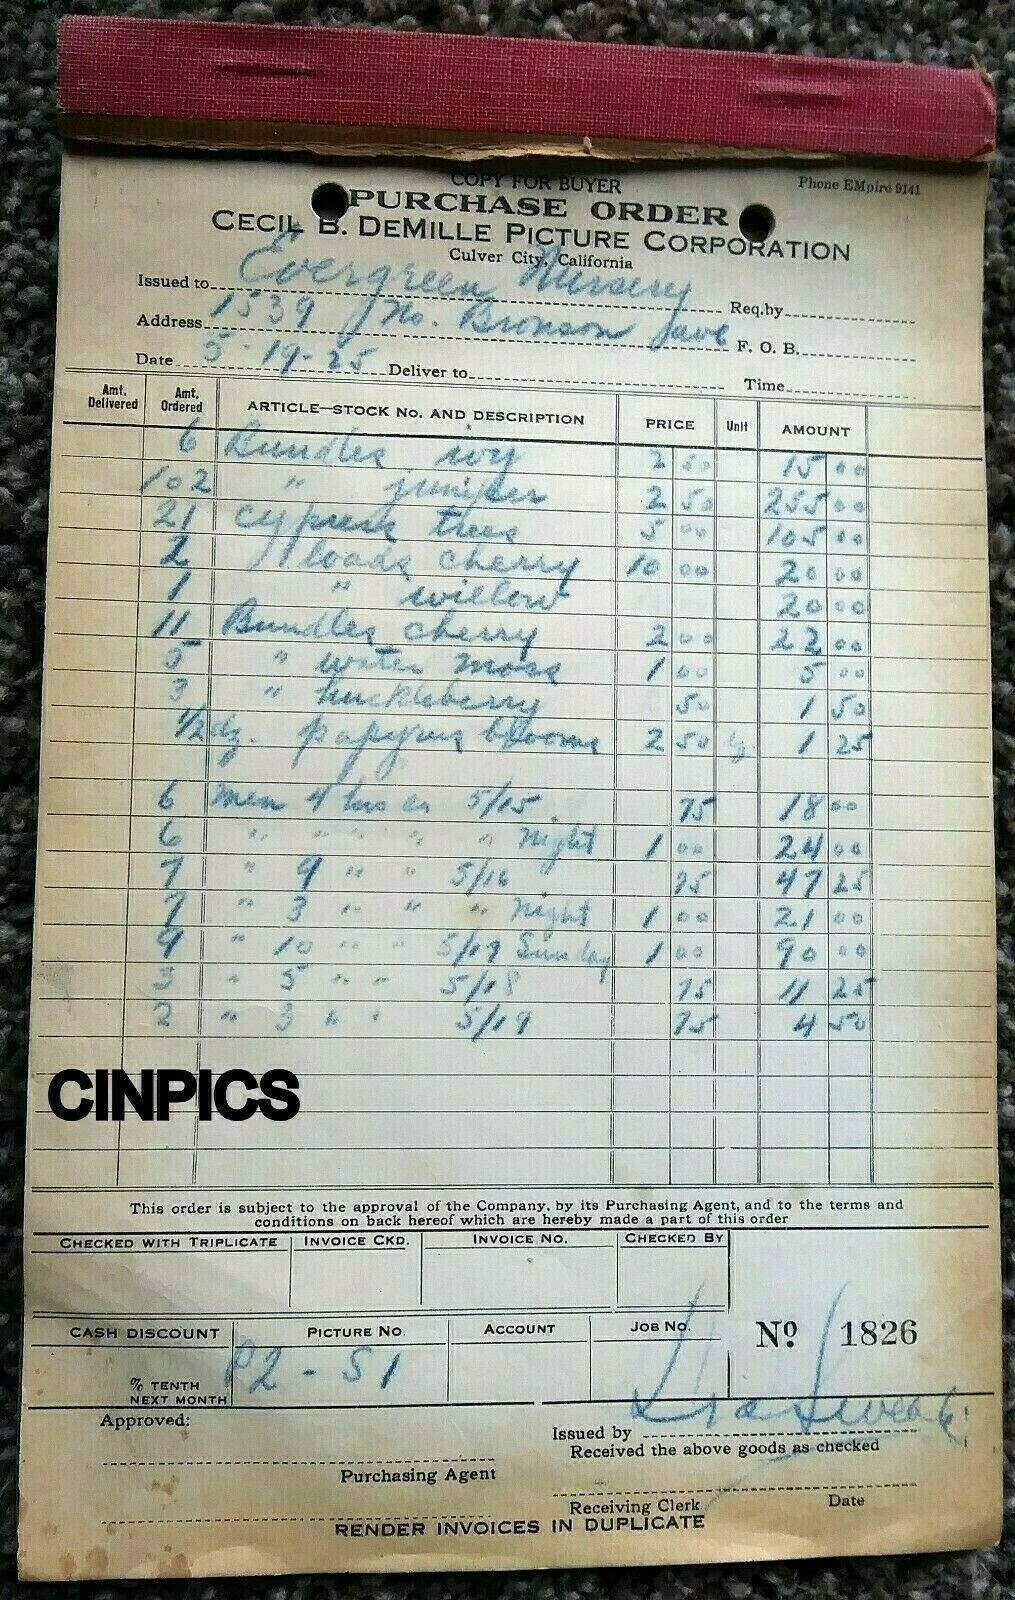 COPY FOR BUYER
Phone EMpire 9141
PURCHASE ORDER
CECIL B. DEMILLE PICTURE CORPORATION
Culver City, California
Issued to Evergreen Nursery Req.by
Address 1539 No. Bronson Ave F. O. B.
Date 5-19-25 Deliver to Time
Amt. Delivered Amt. Ordered ARTICLE—STOCK NO. AND DESCRIPTION PRICE Unit AMOUNT
6 Bundles ivy 2 50 15 00
102 " juniper 2 50 255 00
21 cypress trees 5 00 105 00
2 loads cherry 10 00 20 00
1 " willow 20 00
11 Bundles cherry 2 00 22 00
5 " water moss 1 00 5 00
3 " huckleberry 50 1 50
1/2 dz. papyrus blooms 2 50 1 25
6 men 4 hrs ea 5/15 75 18 00
6 " " " " " Night 1 00 24 00
7 " 9 " " 5/16 75 47 25
7 " 3 " " " Night 1 00 21 00
9 " 10 " " 5/17 Sunday 1 00 90 00
3 " 5 " " 5/18 75 11 25
2 " 3 " " 5/19 75 4 50
CINPICS
This order is subject to the approval of the Company, by its Purchasing Agent, and to the terms and
conditions on back hereof which are hereby made a part of this order
CHECKED WITH TRIPLICATE INVOICE CKD. INVOICE NO. CHECKED BY
CASH DISCOUNT PICTURE NO. ACCOUNT JOB NO. No. 1826
% TENTH
NEXT MONTH
P2-51
Approved:
Issued by
Received the above goods as checked
Purchasing Agent
Receiving Clerk Date
RENDER INVOICES IN DUPLICATE